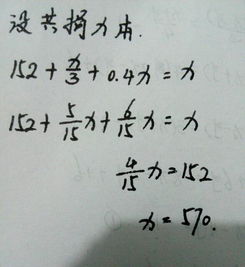 设共捐x本.
152 + x/3 + 0.4x = x
152 + 5/15 x + 6/15 x = x
4/15 x = 152
x = 570.